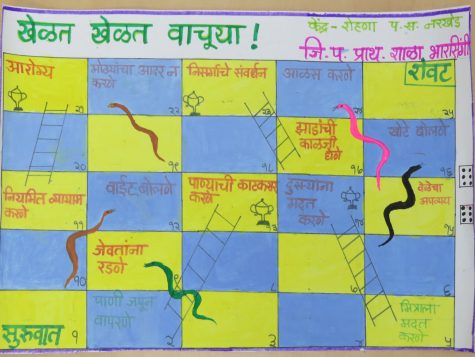 खेळत खेळत वाचूया !
केंद्र - रोहणा प. स. नरखेड
जि. प. प्राथ. शाळा, भारसिंगी
आरोग्य
२१
मोठ्यांचा आदर न
करणे
२२
निसर्गाचे संवर्धन
२३
आळस करणे
२४
शेवट
२५
२०
१९
झाडांची
काळजी
घेणे
१६
खोटे बोलणे
नियमित व्यायाम
करणे
११
वाईट बोलणे
१२
पाण्याची काटकसर
करणे
१३
दुसऱ्यांना
मदत
करणे
१४
वेळेचा
अपव्यय
१५
१०
जेवतांना
रडणे
८
६
सुरुवात १
पाणी जपून
वापरणे
२
३
४
मित्राला
मदत
करणे
५